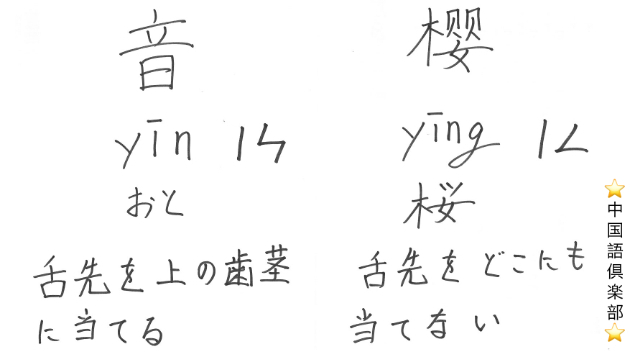 音
yīn ㄧㄣ
おと
舌先を上の歯茎
に当てる
櫻
yīng ㄧㄥ
桜
舌先をどこにも
当てない
⭐中国語倶楽部⭐